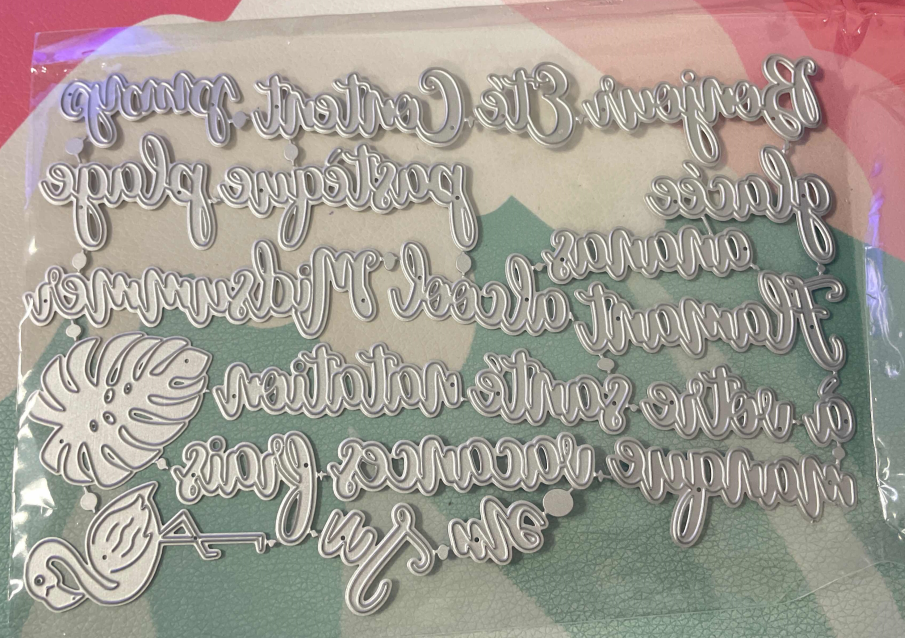 Bonjour Eté Content
glacée pastèque plage
ananas
flamant alcool Midsummer
à votre santé natation
mangue vacances frais
em Sun